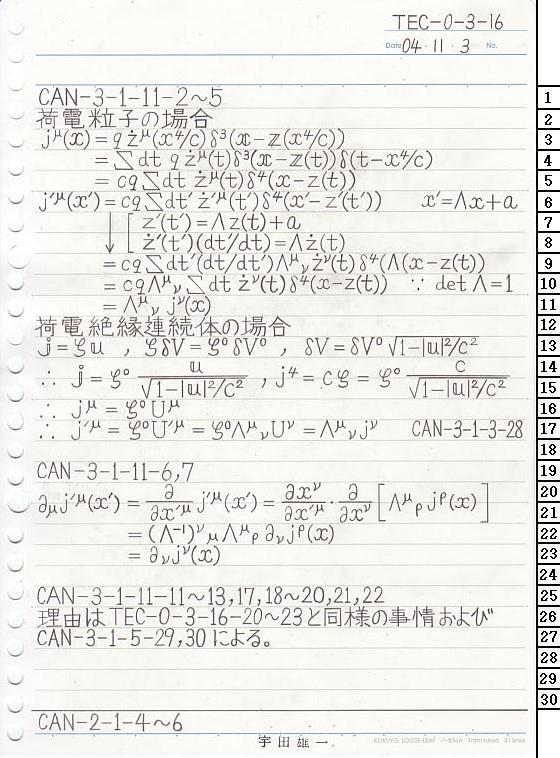 TEC-0-3-16
Date 04・11・3 No.
CAN-3-1-11-2～5
荷電粒子の場合
j^μ(x) = q ż^μ(x⁴/c) δ³(x−z(x⁴/c))
= ∑ dt q ż^μ(t) δ³(x−z(t)) δ(t−x⁴/c)
= cq ∑ dt ż^μ(t) δ⁴(x−z(t))
j'^μ(x') = cq ∑ dt' ż'^μ(t') δ⁴(x'−z'(t')) x'=Λx+a
↓ [ z'(t') = Λz(t)+a
ż'(t')(dt'/dt) = Λż(t)
= cq ∑ dt'(dt/dt') Λ^μ_ν ż^ν(t) δ⁴(Λ(x−z(t))
= cq Λ^μ_ν ∑ dt ż^ν(t) δ⁴(x−z(t)) ∵ det Λ=1
= Λ^μ_ν j^ν(x)
荷電絶縁連続体の場合
j = ζu , ζδV = ζ⁰δV⁰ , δV = δV⁰ √1−|u|²/c²
∴ j = ζ⁰ u/√1−|u|²/c² , j⁴ = cζ = ζ⁰ c/√1−|u|²/c²
∴ j^μ = ζ⁰U^μ
∴ j'^μ = ζ⁰U'^μ = ζ⁰Λ^μ_ν U^ν = Λ^μ_ν j^ν CAN-3-1-3-28
CAN-3-1-11-6,7
∂_μ j'^μ(x') = ∂/∂x'^μ j'^μ(x') = ∂x^ν/∂x'^μ · ∂/∂x^ν [Λ^μ_ρ j^ρ(x)]
= (Λ⁻¹)^ν_μ Λ^μ_ρ ∂_ν j^ρ(x)
= ∂_ν j^ν(x)
CAN-3-1-11-11～13,17,18～20,21,22
理由はTEC-0-3-16-20～23と同様の事情および
CAN-3-1-5-29,30による。
CAN-2-1-4～6
宇田雄一
KOKUYO LOOSE-LEAF ノ-836A 7mm ruled 31 lines
1
2
3
4
5
6
7
8
9
10
11
12
13
14
15
16
17
18
19
20
21
22
23
24
25
26
27
28
29
30